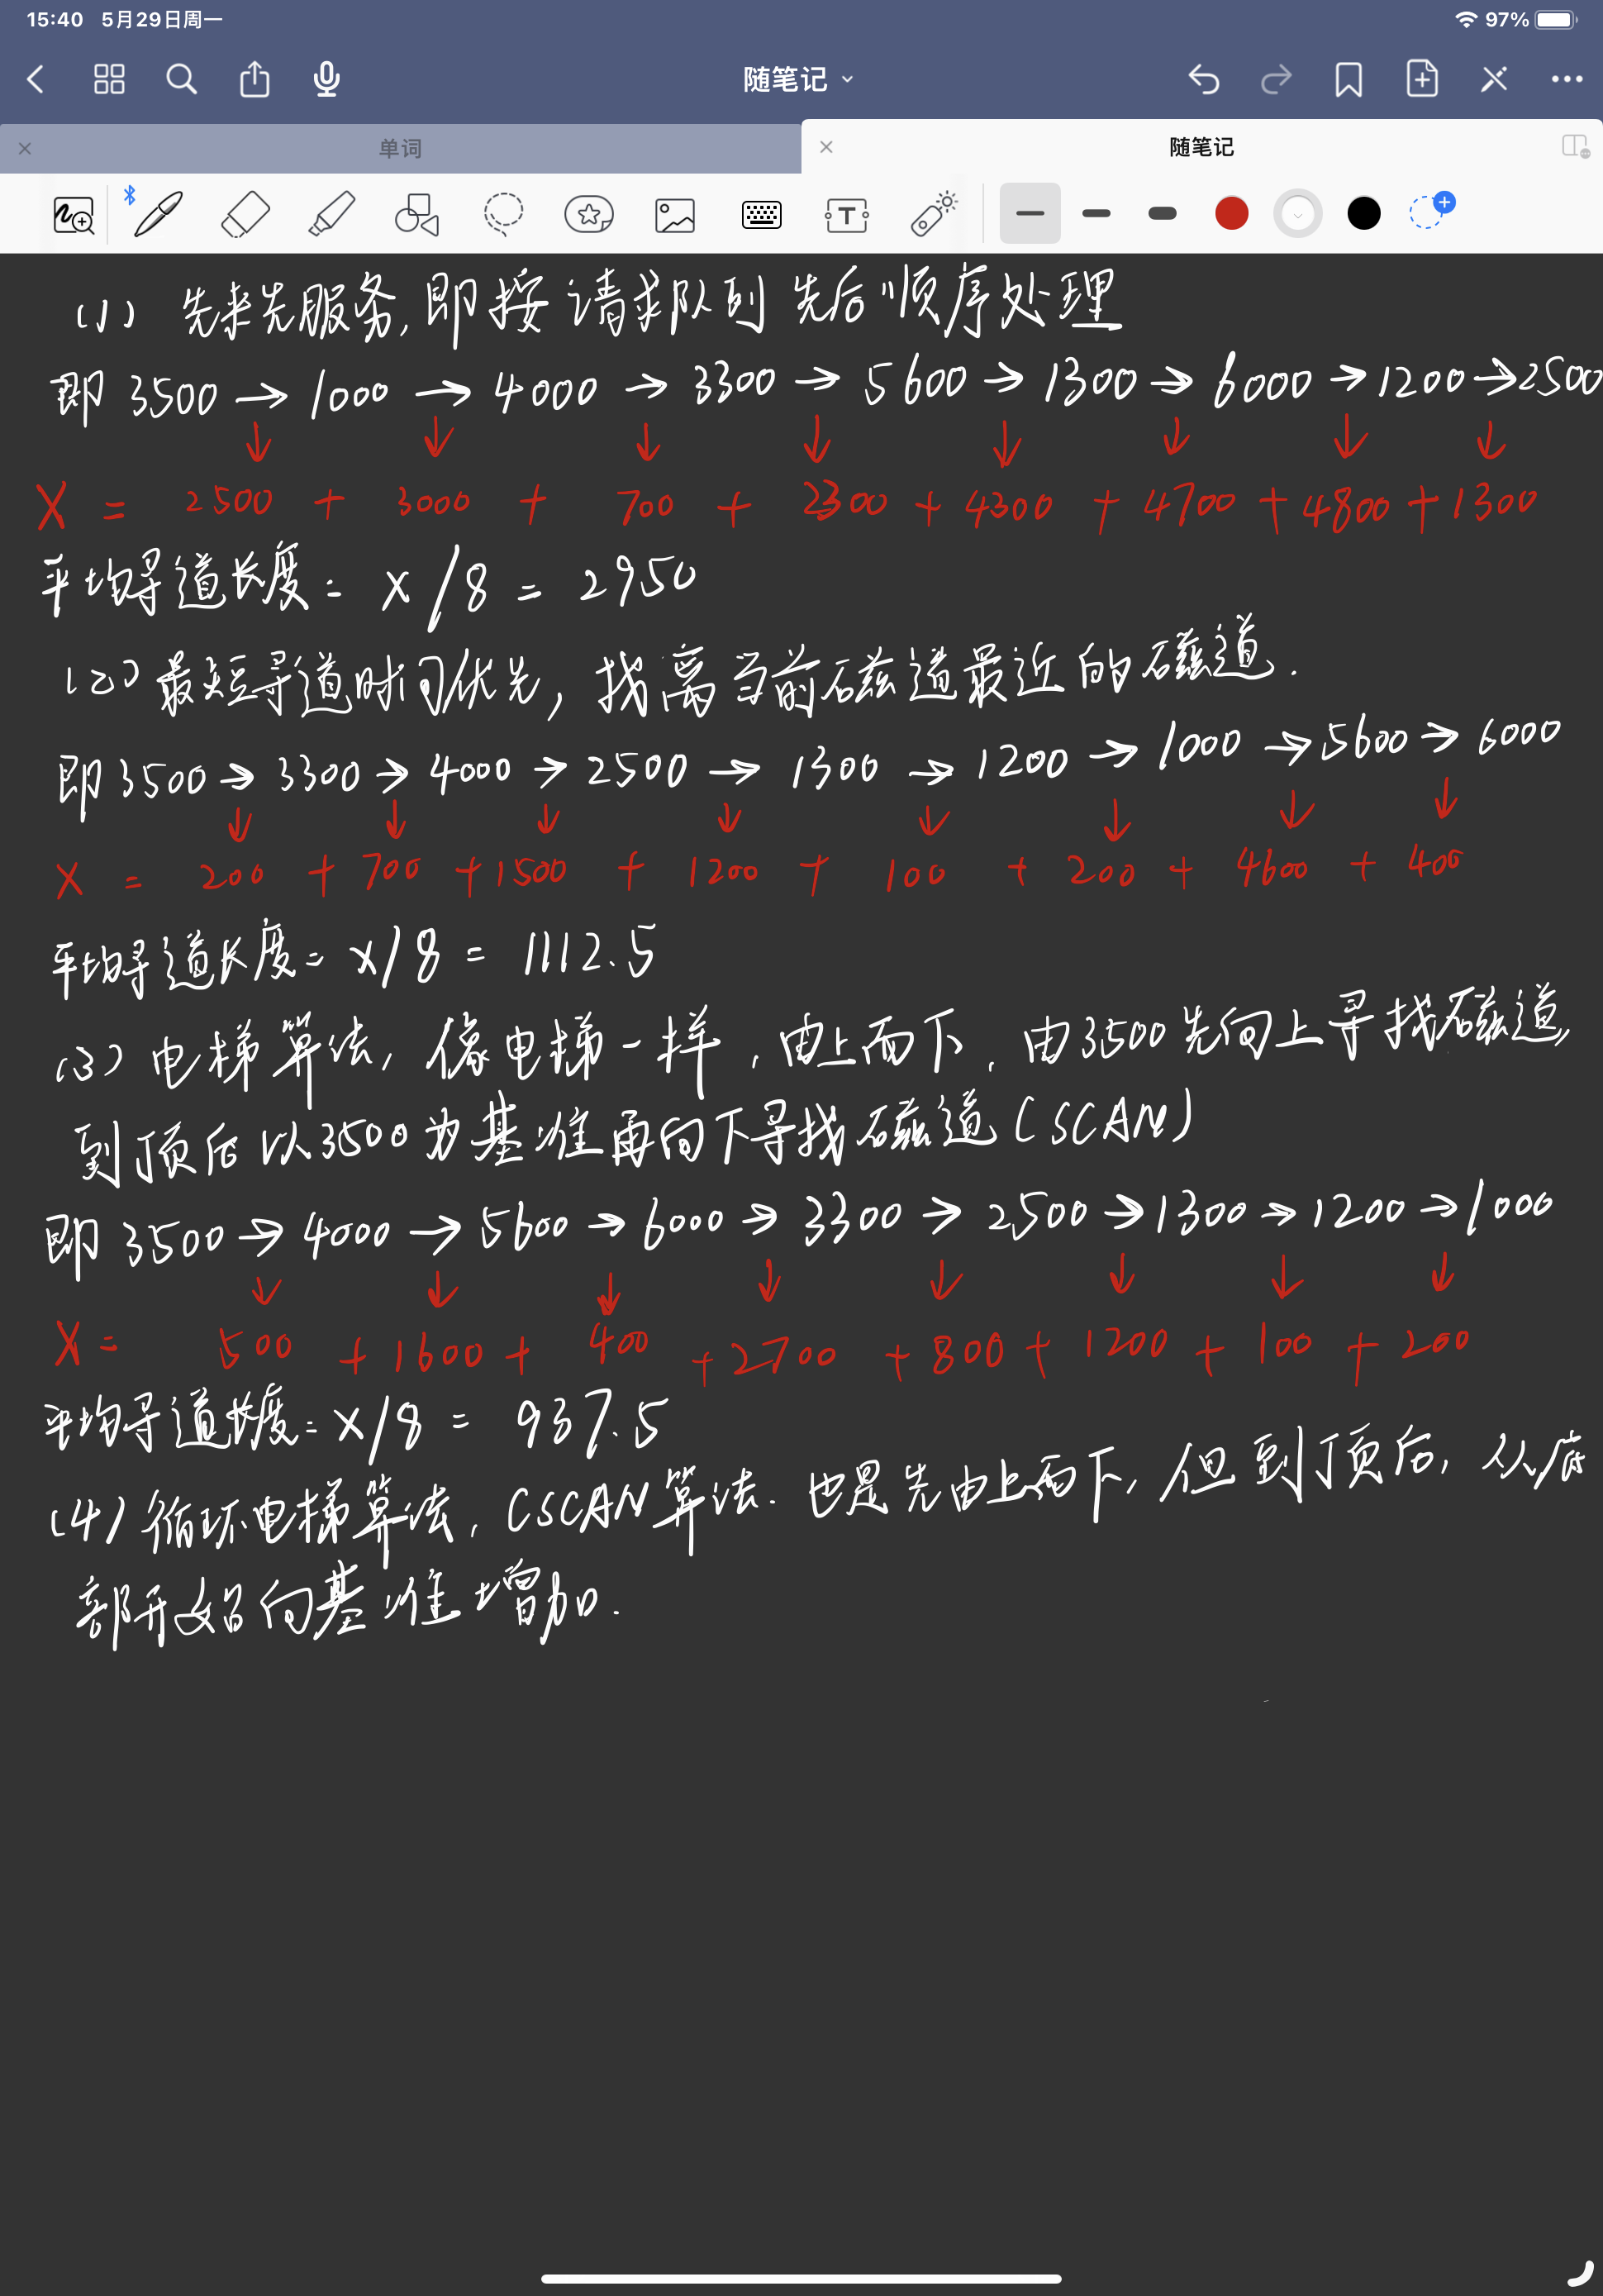 15:40 5月29日周一 97%
随笔记
单词 随笔记
(1) 先来先服务,即按请求队列先后顺序处理
即 3500 → 1000 → 4000 → 3300 → 5600 → 1300 → 6000 → 1200 → 2500
X = 2500 + 3000 + 700 + 2300 + 4300 + 4700 + 4800 + 1300
平均寻道长度 = X/8 = 2950
(2) 最短寻道时间优先, 找离当前磁道最近的磁道.
即 3500 → 3300 → 4000 → 2500 → 1300 → 1200 → 1000 → 5600 → 6000
X = 200 + 700 + 1500 + 1200 + 100 + 200 + 4600 + 400
平均寻道长度 = X/8 = 1112.5
(3) 电梯算法, 像电梯一样, 由上而下, 由3500先向上寻找磁道,
到顶后以3500为基准再向下寻找磁道 (SCAN)
即 3500 → 4000 → 5600 → 6000 → 3300 → 2500 → 1300 → 1200 → 1000
X = 500 + 1600 + 400 + 2700 + 800 + 1200 + 100 + 200
平均寻道长度 = X/8 = 937.5
(4) 循环电梯算法, CSCAN算法. 也是先由上而下, 但到顶后, 从底
部开始向基准增加.